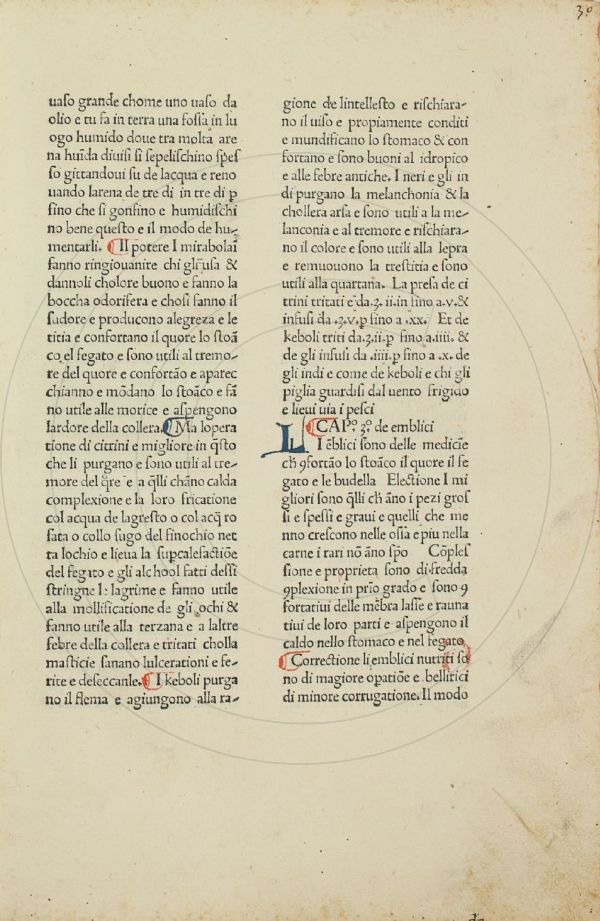 30
uaſo grande chome uno uaſo da
olio e tu fa in terra una foſſa in lu
ogo humido doue tra molta are
na hūida diuiſi ſi ſepeliſchino ſpeſ
ſo gittandoui ſu de lacqua e reno
uando larena de tre di in tre di p
fino che ſi gonfino e humidiſchi
no bene queſto e il modo de hu-
mentarli. Il potere I mirabolaī
fanno ringiouanire chi gli uſa &
dannoli cholore buono e fanno la
boccha odorifera e choſi fanno il
ſudore e producono alegreza e le
titia e confortano il quore lo ſtoā
co el fegato e ſono utili al tremo-
re del quore e confortāo e aparec
chianno e mōdano lo ſtoāco e fā
no utile alle morice e aſpengono
lardore della collera. Ma lopera
tione di citrini e migliore in q̄ſto
che li purgano e ſono utili al tre-
more del q̄re e a q̄lli chāno calda
complexione e la loro fricatione
col acqua de lagreſto o col acq̄ ro
ſata o collo ſugo del finochio net
ta lochio e lieua la ſupcalefactiōe
del fegato e gli alchool fatti deſſi
ſtringne le lagrime e fanno utile
alla mollificatione de gli ochi &
fanno utile alla terzana e a laltre
febre della collera e tritati cholla
maſticie ſanano lulcerationi e fe-
rite e deſeccanle. I keboli purga
no il flema e agiungono alla ra-
gione de lintelleſto e riſchiara-
no il uiſo e propiamente conditi
e mundificano lo ſtomaco & con
fortano e ſono buoni al idropico
e alle febre antiche. I neri e gli in
di purgano la melanchonia & la
chollera arſa e ſono utili a la me-
lanconia e al tremore e riſchiara-
no il colore e ſono utili alla lepra
e remuouono la treſtitia e ſono
utili alla quartana. La preſa de ci
trini tritati e da.ʒ. ii.in fino a.v.&
infuſi da .ʒ.v.p fino a .xx. Et de
keboli triti da.ʒ.ii.p fino a.iiii. &
de gli infuſi da .iiii.p fino a .x. de
gli indi e come de keboli e chi gli
piglia guardiſi dal uento frigido
e lieui uia i peſci
CAPº. 3º. de emblici
LI ēblici ſono delle medicīe
ch̄ ꝯfortāo lo ſtoāco il quore il fe
gato e le budella Electione I mi
gliori ſono q̄lli ch̄ āno i pezi groſ
ſi e ſpeſſi e graui e quelli che me
nno creſcono nelle oſſa e piu nella
carne i rari nō āno ſpō Cōpleſ
ſione e proprieta ſono di fredda
ꝯplexione in prīo grado e ſono ꝯ
fortatiui delle mēbra laſſe e rauna
tiui de loro parti e aſpengono il
caldo nello ſtomaco e nel fegato
Correctione li emblici nutriti ſō
no di magiore opatiōe e bellirici
di minore corrugatione. Il modo